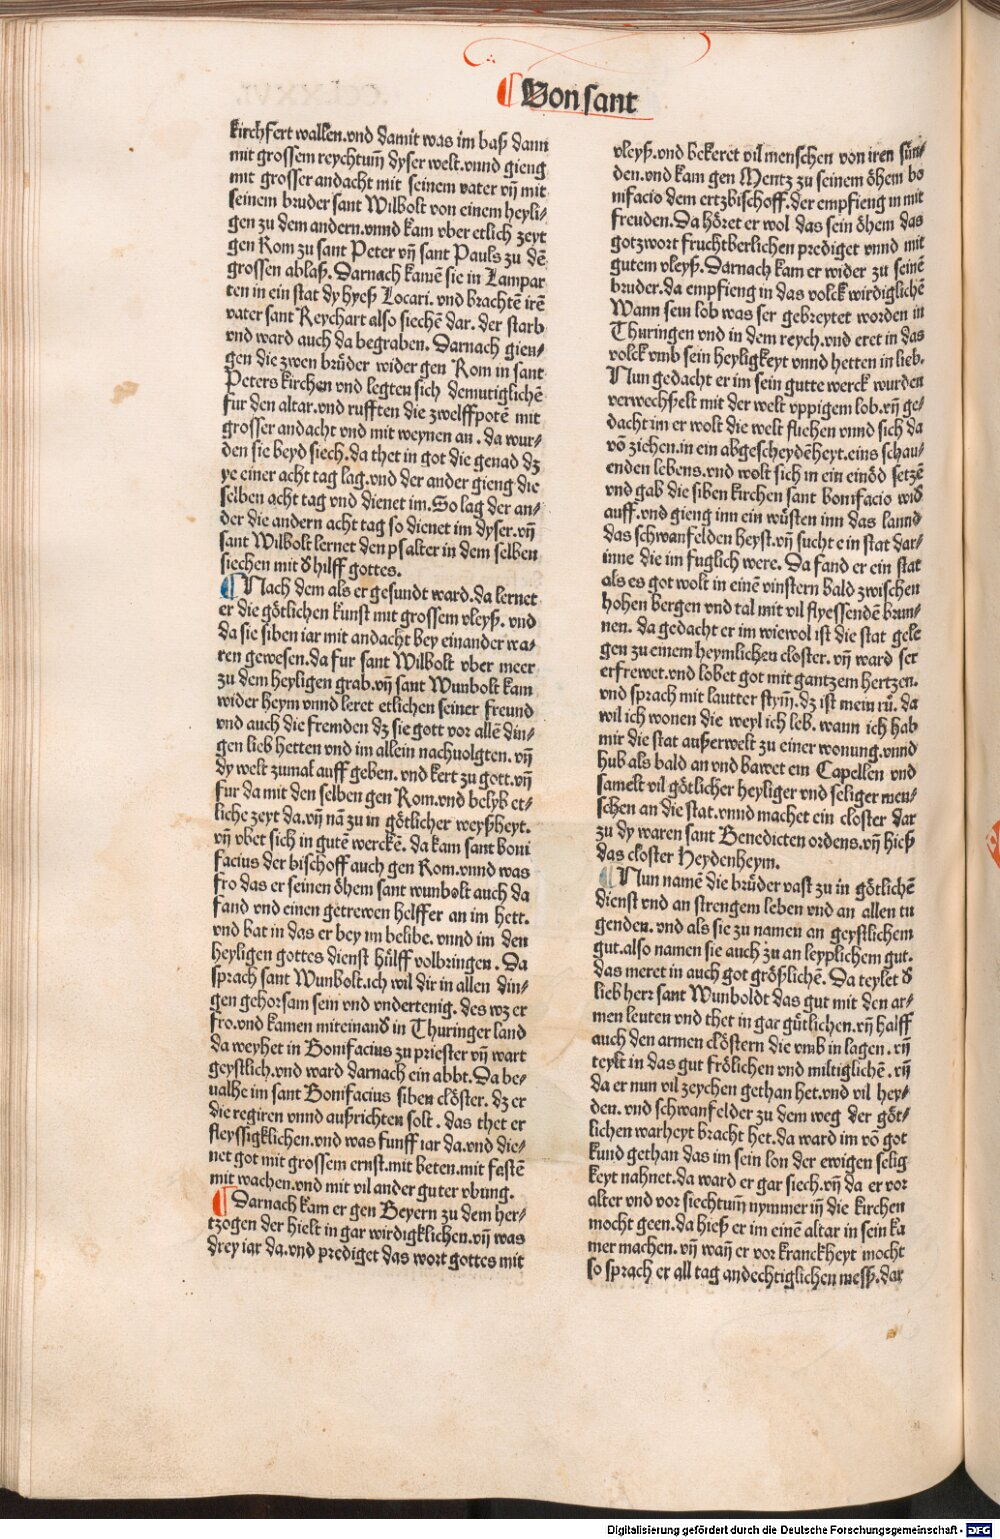 Von sant
kirchfert wallen.vnd damit was im baß dann
mit grossem reychtum̄ dyser welt.vnnd gieng
mit grosser andacht mit seinem vater vn̄ mit
seinem bruder sant Wilbolt von einem heyli⸗
gen zu dem andern.vnnd kam vber etlich zeyt
gen Rom zu sant Peter vn̄ sant Pauls zu dē
grossen ablaß. Darnach kamē sie in Lampar
ten in ein stat dy hyeß Locari. vnd brachtē irē
vater sant Reychart also siechē dar. der starb
vnd ward auch da begraben. Darnach gien⸗
gen die zwen brüder wider gen Rom in sant
Peters kirchen vnd legten sich demutiglichē
fur den altar.vnd rufften die zwelffpotē mit
grosser andacht vnd mit weynen an . da wur⸗
den sie beyd siech.da thet in got die genad dz
ye einer acht tag lag.vnd der ander gieng die
selben acht tag vnd dienet im. So lag der an⸗
der die andern acht tag so dienet im dyser.vn̄
sant Wilbolt lernet den psalter in dem selben
siechen mit d̕ hilff gottes.
¶ Nach dem als er gesundt ward.da lernet
er die götlichen kunst mit grossem vleyß. vnd
da sie siben iar mit andacht bey einander wa⸗
ren gewesen.da fur sant Wilbolt vber meer
zu dem heyligen grab.vn̄ sant Wunbolt kam
wider heym vnnd leret etlichen seiner freund
vnd auch die fremden dz sie gott vor allē din⸗
gen lieb hetten vnd im allein nachuolgten. vn̄
dy welt zumal auff geben. vnd kert zu gott.vn̄
fur da mit den selben gen Rom.vnd belyb et⸗
liche zeyt da.vn̄ nā zu in götlicher weyßheyt.
vn̄ vbet sich in gutē werckē. da kam sant boni
facius der bischoff auch gen Rom.vnnd was
fro das er seinen öhem sant wunbolt auch da
fand vnd einen getrewen helffer an im hett.
vnd bat in das er bey im belibe. vnnd im den
heyligen gottes dienst hülff volbringen . Da
sprach sant Wunbolt.ich wil dir in allen din⸗
gen gehorsam sein vnd vndertenig. des wz er
fro.vnd kamen miteinand̕ in Thuringer land
da weyhet in Bonifacius zu priester vn̄ wart
geystlich.vnd ward darnach ein abbt. Da be⸗
ualhe im sant Bonifacius siben clöster. dz er
die regiren vnnd außrichten solt . das thet er
fleyssigklichen.vnd was funff iar da.vnd die⸗
net got mit grossem ernst.mit beten.mit fastē
mit wachen.vnd mit vil ander guter vbung.
¶ Darnach kam er gen Beyern zu dem her⸗
tzogen der hielt in gar wirdigklichen.vn̄ was
drey iar da.vnd prediget das wort gottes mit
vleyß.vnd bekeret vil menschen von iren sün⸗
den.vnd kam gen Mentz zu seinem öhem bo
nifacio dem ertzbischoff.der empfieng in mit
freuden. Da höret er wol das sein öhem das
gotzwort fruchtberlichen prediget vnnd mit
gutem vleyß. Darnach kam er wider zu seinē
bruder.da empfieng in das volck wirdiglichē
Wann sein lob was ser gebreytet worden in
Thuringen vnd in dem reych.vnd eret in das
volck vmb sein heyligkeyt vnnd hetten in lieb.
Nun gedacht er im sein gutte werck wurden
verwechßelt mit der welt vppigem lob.vn̄ ge⸗
dacht im er wolt die welt fliehen vnnd sich da
vō ziehen.in ein abgescheydēheyt.eins schau⸗
enden lebens.vnd wolt sich in ein einöd setzē
vnd gab die siben kirchen sant bonifacio wid̕
auff.vnd gieng inn ein wüsten inn das lannd
das schwanfelden heyst.vn̄ sucht ein stat dar⸗
inne die im fuglich were. Da fand er ein stat
als es got wolt in einē vinstern wald zwischen
hohen bergen vnd tal mit vil flyessendē brun⸗
nen. da gedacht er im wiewol ist die stat gele
gen zu einem heymlichen closter. vn̄ ward ser
erfrewet.vnd lobet got mit gantzem hertzen.
vnd sprach mit lautter stym̄.dz ist mein rů. da
wil ich wonen die weyl ich leb. wann ich hab
mir die stat außerwelt zu einer wonung.vnnd
hub als bald an vnd bawet ein Capellen vnd
samelt vil götlicher heyliger vnd seliger men⸗
schen an die stat.vnnd machet ein closter dar
zu dy waren sant Benedicten ordens.vn̄ hieß
das closter Heydenheym.
¶ Nun namē die brüder vast zu in götlichē
dienst vnd an strengem leben vnd an allen tu
genden. vnd als sie zu namen an geystlichem
gut.also namen sie auch zu an leyplichem gut.
das meret in auch got größlichē. Da teylet d̕
lieb herr sant Wunboldt das gut mit den ar⸗
men leuten vnd thet in gar gütlichen.vn̄ halff
auch den armen clöstern die vmb in lagen . vn̄
teylt in das gut frölichen vnd miltiglichē . vn̄
da er nun vil zeychen gethan het.vnd vil hey⸗
den. vnd schwanfelder zu dem weg der göt⸗
lichen warheyt bracht het.da ward im vō got
kund gethan das im sein lon der ewigen selig
keyt nahnet.da ward er gar siech.vn̄ da er vor
alter vnd vor siechtum̄ nymmer in̄ die kirchen
mocht geen.da hieß er im einē altar in sein ka
mer machen. vn̄ wan̄ er vor kranckheyt mocht
so sprach er all tag andechtiglichen meß.dar
Digitalisierung gefördert durch die Deutsche Forschungsgemeinschaft - DFG